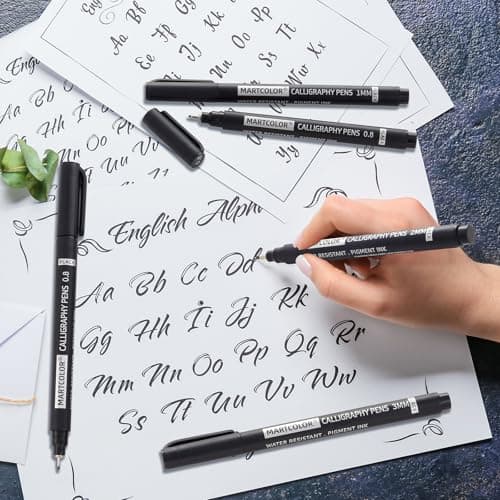 Aa Bb
Ee Ff
Ii Jj
Oo
Tt
Xx
Yy
MARTCOLOR® CALLIGRAPHY PENS 1MM BLACK
WATER RESISTANT . PIGMENT INK
MARTCOLOR® CALLIGRAPHY PENS 0.8 BLACK
English
Aa Bb
Gg Hh Ii
Mm Nn Oo
Uu Vv
MARTCOLOR® CALLIGRAPHY PENS 0.8 BLACK
English Alph
Aa Bb Cc Dd
Gg Hh Ii Jj Kk
Mm Nn Oo Pp Qq Rr
Ss Tt Uu Vv Ww
CALLIGRAPHY PENS 2MM
RESISTANT . PIGMENT INK
MARTCOLOR® CALLIGRAPHY PENS 3MM
WATER RESISTANT . PIGMENT INK